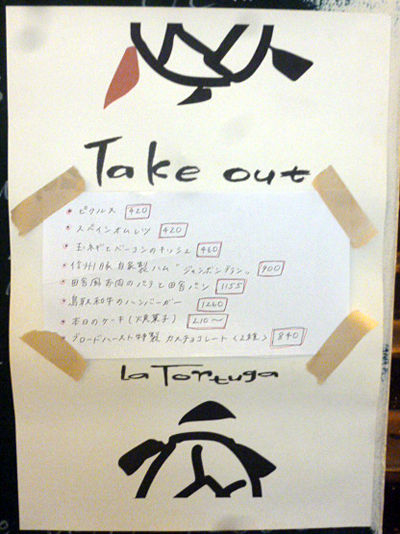 Take out
ピクルス 420
スペインオムレツ 420
玉ネギとベーコンのキッシュ 460
信州豚自家製ハム"ジャンボンブラン" 900
田舎風お肉のパテと田舎パン 1155
鳥取和牛のハンバーガー 1260
本日のケーキ(焼菓子) 210〜
ブロードハースト特製 生チョコレート〈2種〉 840
La Tortuga